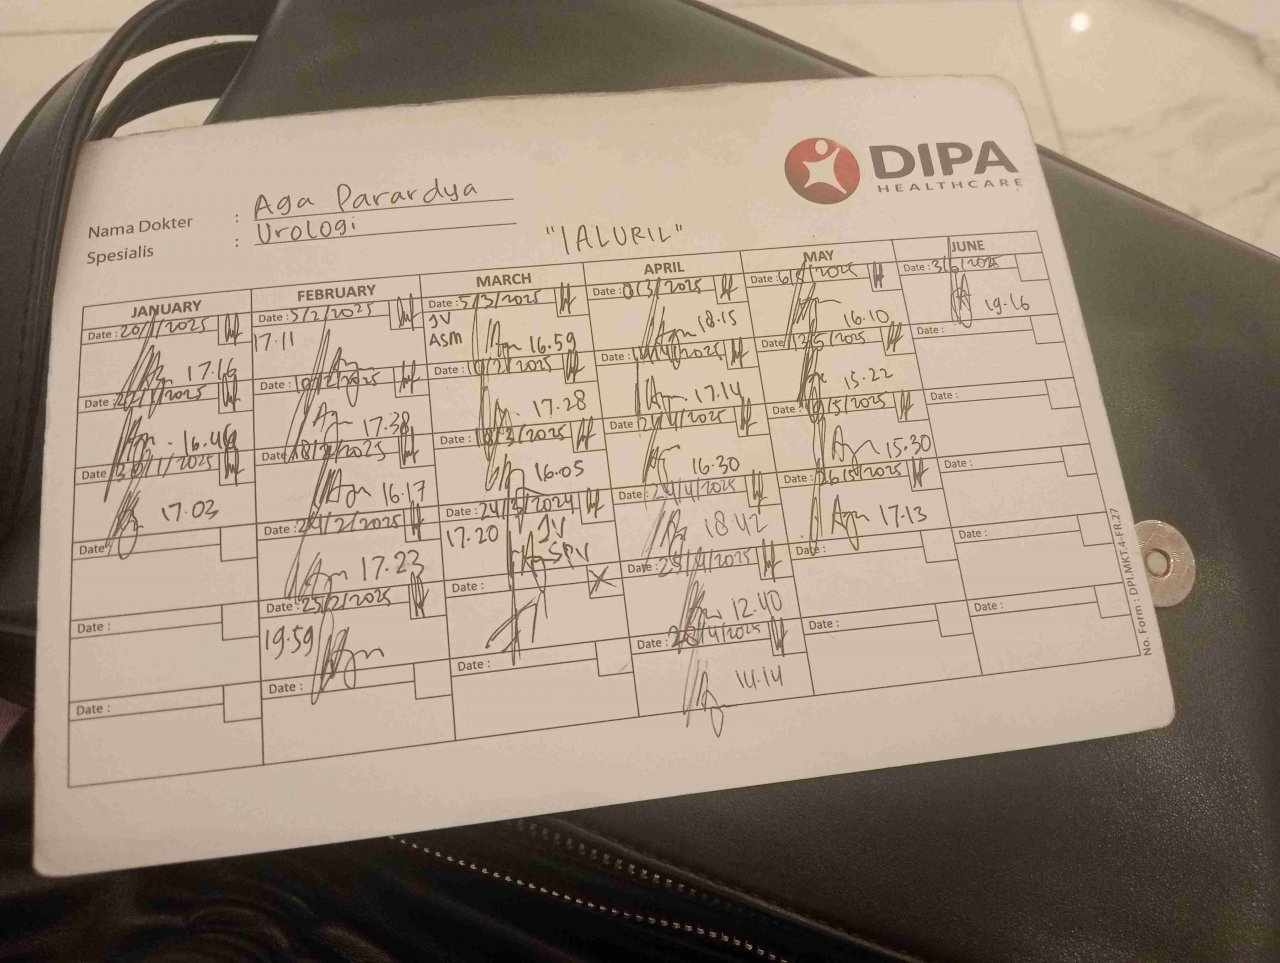 DIPA
HEALTHCARE
Nama Dokter : Aga Parardya
Spesialis : Urologi
"IALURIL"
JANUARY
Date : 20/1/2025
17.16
Date : /1/2025
16.4
Date : 30/1/2025
17.03
Date :
Date :
Date :
FEBRUARY
Date : 5/2/2025
17.11
Date : 10/2/2025
17.38
Date : 18/2/2025
16.17
Date : 24/2/2025
17.23
Date : 25/2/2025
19.59
Date :
MARCH
Date : 5/3/2025
JV
ASM
16.59
Date : 10/2/2025
17.28
Date : 18/3/2025
16.05
Date : 24/3/2024
17.20 JV
SPV
Date :
Date :
APRIL
Date : /3/2025
18.15
Date : /4/2025
17.14
Date : 21/4/2025
16.30
Date : 24/4/2025
18.42
Date : 25/4/2025
12.40
Date : 28/4/2025
14.14
MAY
Date : 6/5/2025
16.10
Date : 13/5/2025
15.22
Date : 19/5/2025
15.30
Date : 26/5/2025
17.13
Date :
Date :
JUNE
Date : 3/6/2025
19.16
Date :
Date :
Date :
Date :
Date :
No. Form : DPI.MKT.4-FR.27